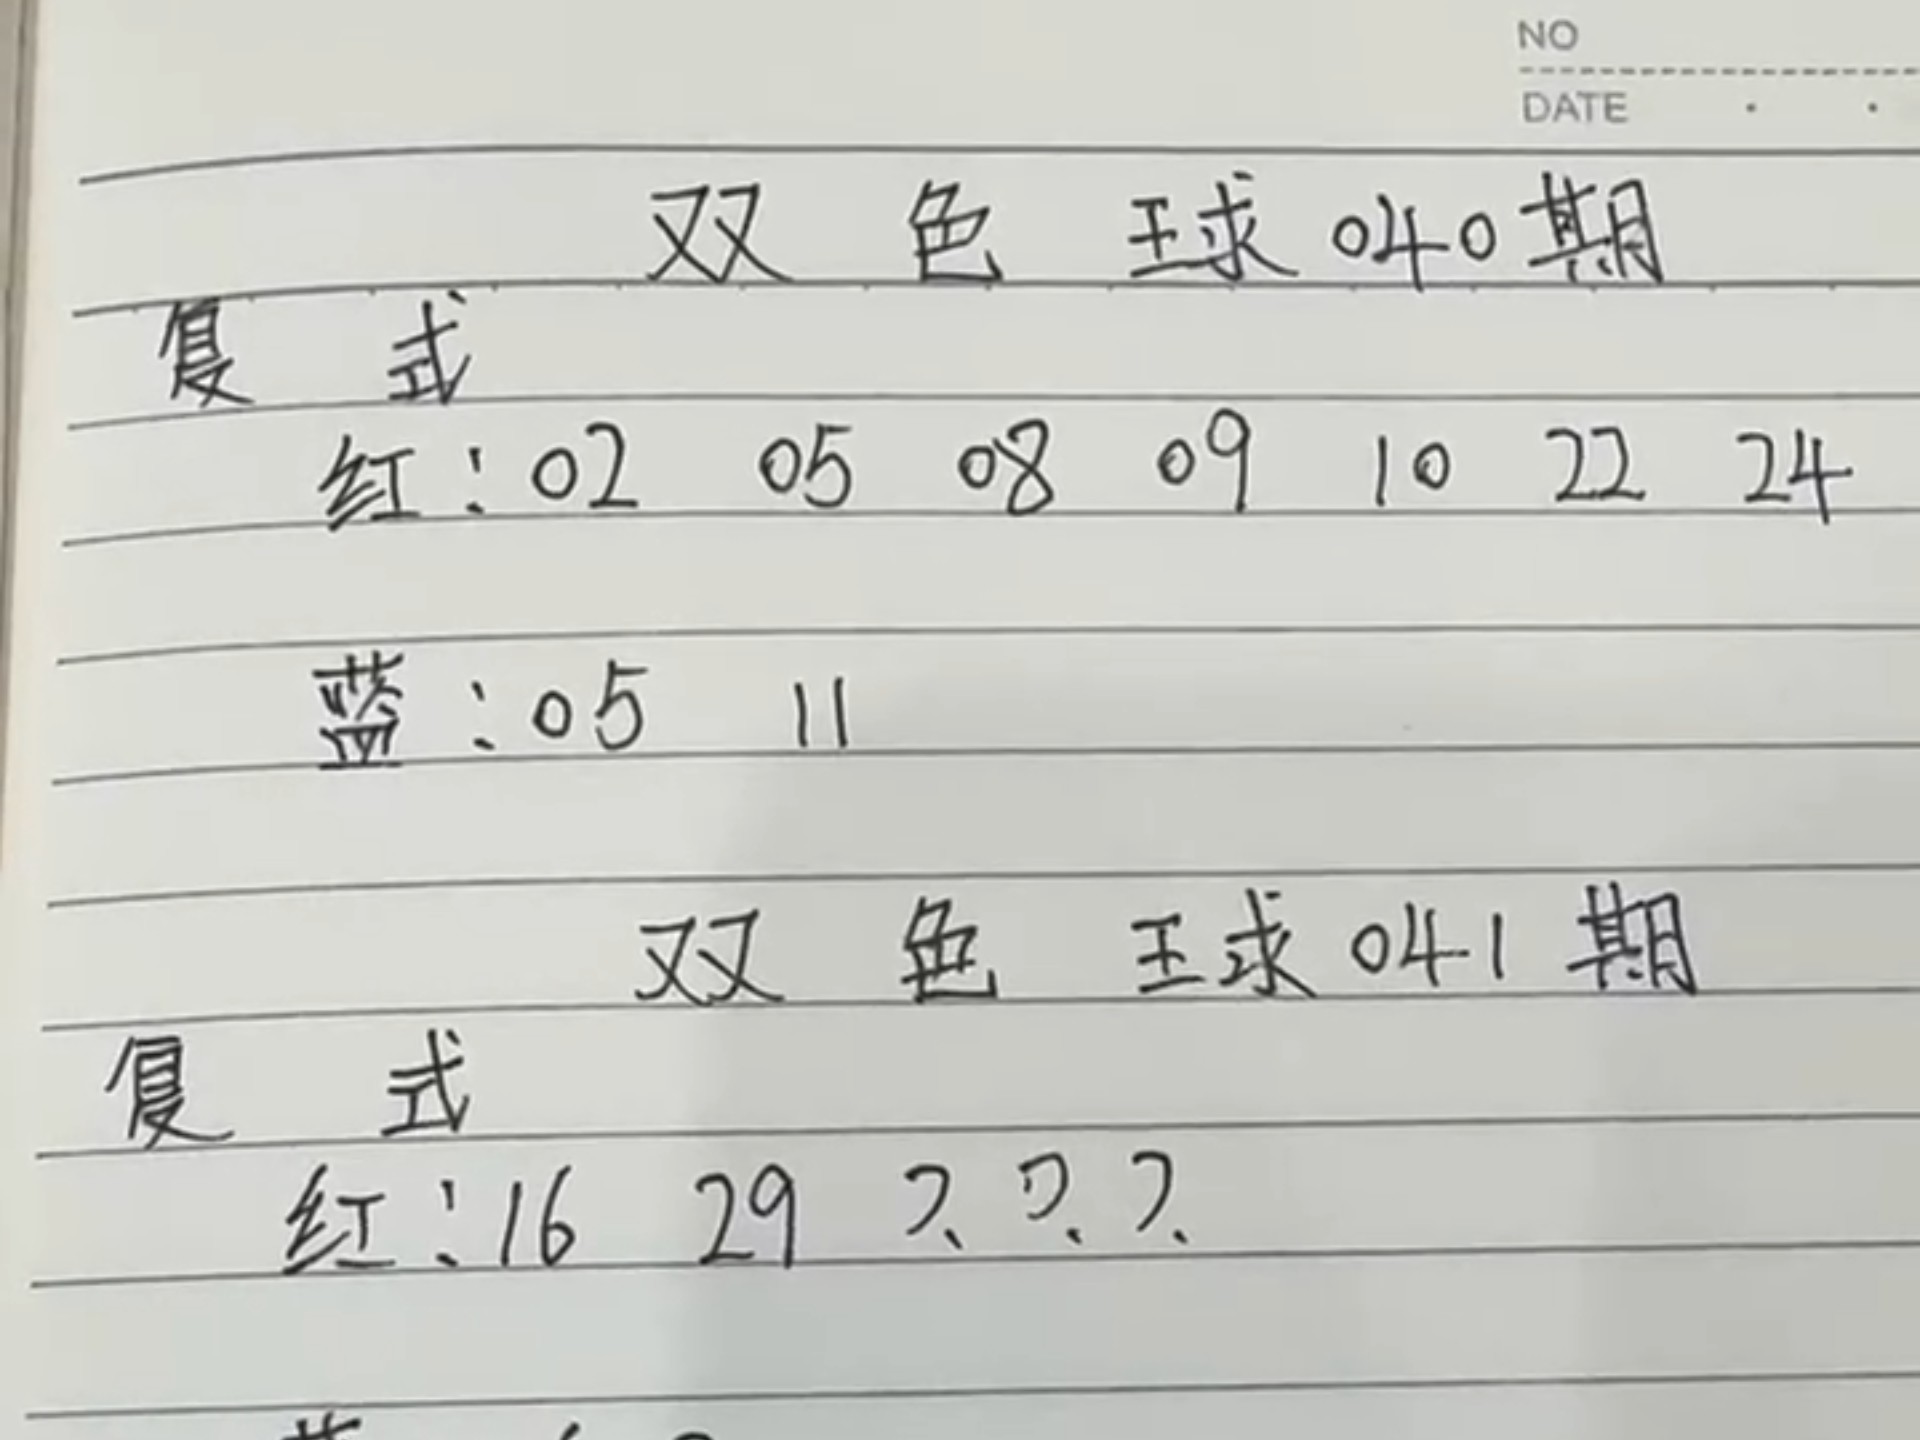 NO
DATE
双 色 球 040期
复 式
红:02 05 08 09 10 22 24
蓝:05 11
双 色 球 041期
复 式
红:16 29 ? ? ?